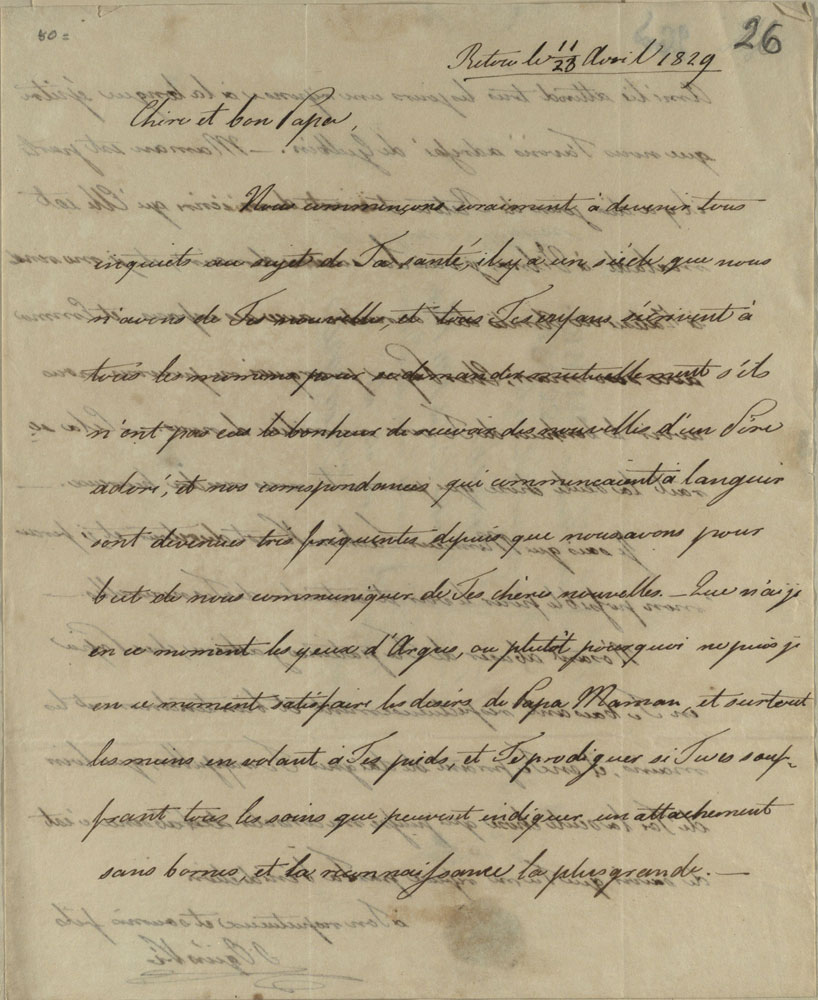 80=
26
Retow le 11/23 Avril 1829
Chère et bon Papa,
Nous commençons vraiment à devenir tous
inquiets au sujet de Ta santé, il y a un siècle que nous
n'avons de Tes nouvelles, et tous Tes enfans s'écrivent à
tous les momens pour se demander mutuellement s'ils
n'ont pas eus le bonheur de recevoir des nouvelles d'un Père
adoré, et nos correspondances qui commencaient à languir
sont devenues tres frequentes depuis que nous avons pour
but de nous communiquer de Tes chères nouvelles. — Que n'ai je
en ce moment les yeux d'Argus, ou plutôt pourquoi ne puis je
en ce moment satisfaire les desirs de Papa Maman, et surtout
les miens en volant à Tes pieds, et Te prodiguer si Tu es souf-
frant tous les soins que peuvent indiquer un attachement
sans bornes, et la reconnaissance la plus grande. —